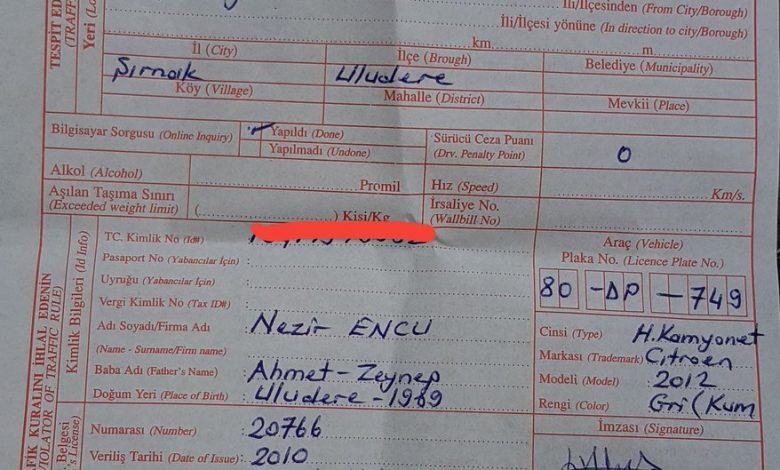 TESPİT ED
(TRAFFIC
Yeri (Loc
İli/İlçesinden (From City/Borough)
İli/İlçesi yönüne (In direction to city/Borough)
km. m.
İl (City) İlçe (Brough) Belediye (Municipality)
Şırnak Uludere
Köy (Village) Mahalle (District) Mevkii (Place)
Bilgisayar Sorgusu (Online Inquiry) Yapıldı (Done) Sürücü Ceza Puanı
Yapılmadı (Undone) (Drv. Penalty Point) 0
Alkol (Alcohol) Promil Hız (Speed) Km/s.
Aşılan Taşıma Sınırı İrsaliye No.
(Exceeded weight limit) ( ) Kişi/Kg (Wallbill No)
AFİK KURALINI İHLAL EDENİN
VIOLATOR OF TRAFFIC RULE)
Kimlik Bilgileri (Id Info)
TC. Kimlik No (Id#)
Pasaport No (Yabancılar İçin)
Uyruğu (Yabancılar İçin)
Vergi Kimlik No (Tax ID#)
Adı Soyadı/Firma Adı Nezir ENCU
(Name - Surname/Firm name)
Baba Adı (Father's Name) Ahmet-Zeynep
Doğum Yeri (Place of Birth) Uludere-1989
Belgesi
's License)
Numarası (Number) 20766
Veriliş Tarihi (Date of Issue) 2010
Araç (Vehicle)
Plaka No. (Licence Plate No.)
80 -DP -749
Cinsi (Type) H.Kamyonet
Markası (Trademark) Citroen
Modeli (Model) 2012
Rengi (Color) Gri(Kum
İmzası (Signature)